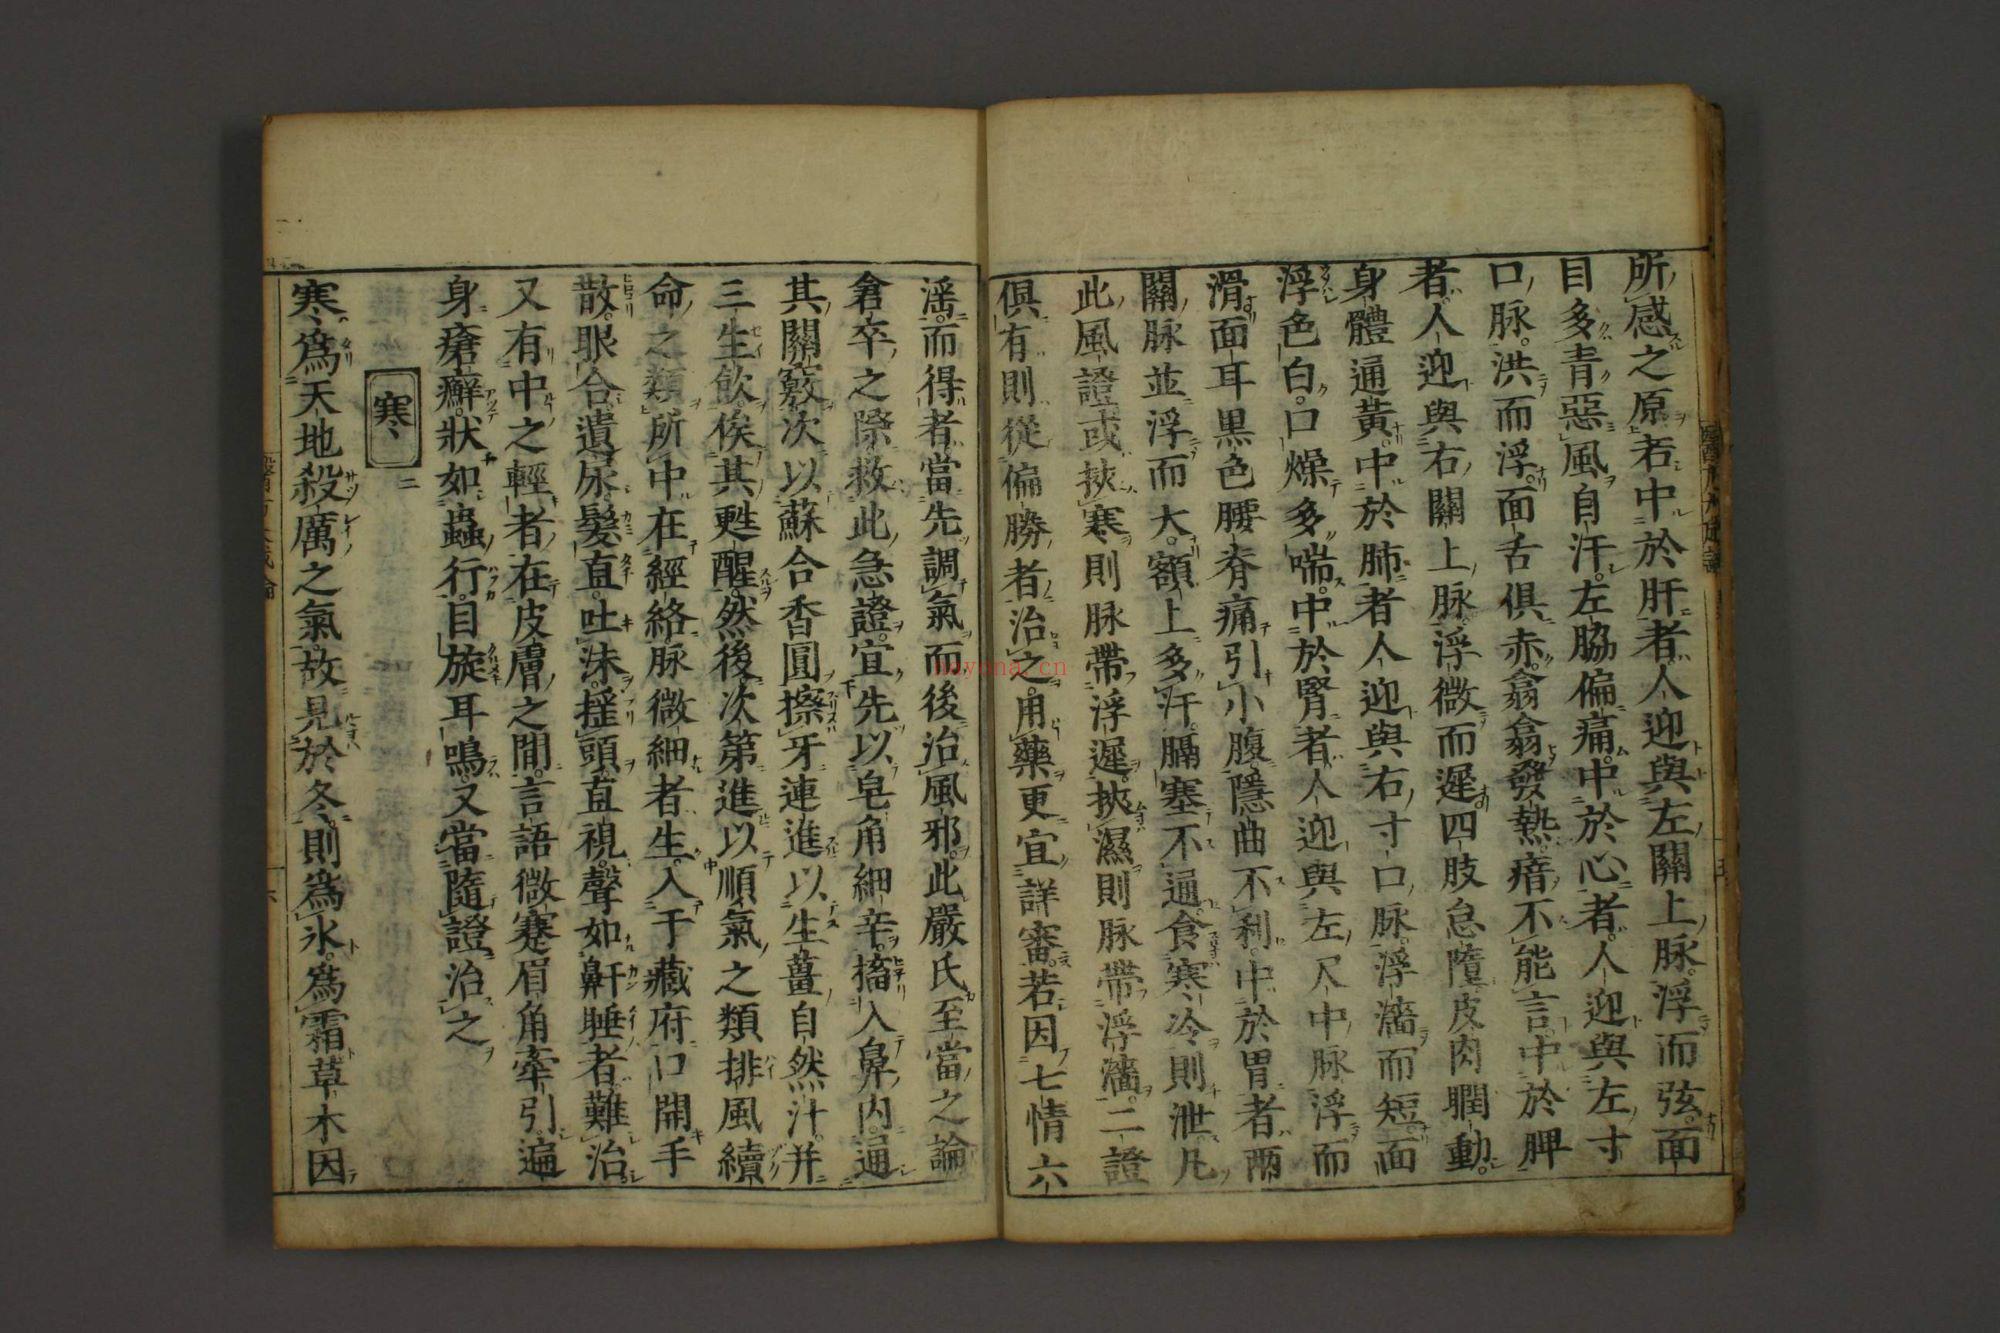 所感之原若中於肝者人迎與左關上脉浮而弦面
目多青惡風自汗左脇偏痛中於心者人迎與左寸
口脉洪而浮面舌俱赤翕翕發熱瘖不能言中於脾
者人迎與右關上脉浮微而遲四肢怠墮皮肉瞤動
身體通黃中於肺者人迎與右寸口脉浮濇而短面
浮色白口燥多喘中於腎者人迎與左尺中脉浮而
滑面耳黒色腰脊痛引小腹隱曲不利中於胃者兩
關脉並浮而大額上多汗膈塞不通食寒冷則泄凡
此風證或挾寒則脉帶浮遲挾濕則脉帶浮濇二證
俱有則從偏勝者治之用藥更宜詳審若因七情六
淫而得者當先調氣而後治風邪此嚴氏至當之論
倉卒之際救此急證宜先以皂角細辛搐入鼻内通
其關竅次以蘇合香圓擦牙連進以生薑自然汁并
三生飲俟其甦醒然後次第進以順氣之類排風續
命之類所中在經絡脉微細者生入于藏府口開手
散眼合遺尿髮直吐沫揺頭直視聲如鼾睡者難治
又有中之輕者在皮膚之間言語微蹇眉角牽引遍
身瘡癬狀如蟲行目旋耳鳴又當隨證治之
寒
寒爲天地殺厲之氣故見於冬則爲氷爲霜草木因
hoynna.cn